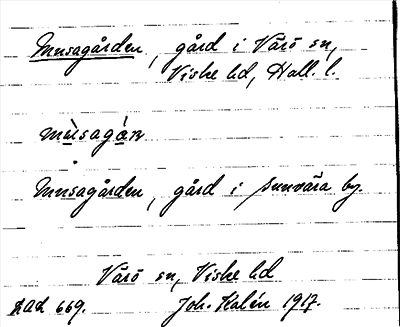 Musagården, gård i Värö sn,
Viske hd, Hall. l.
mùsagán
Musagården, gård i Sunvära by.
Värö sn, Viske hd
Kad 669. Joh. Kalén 1917.